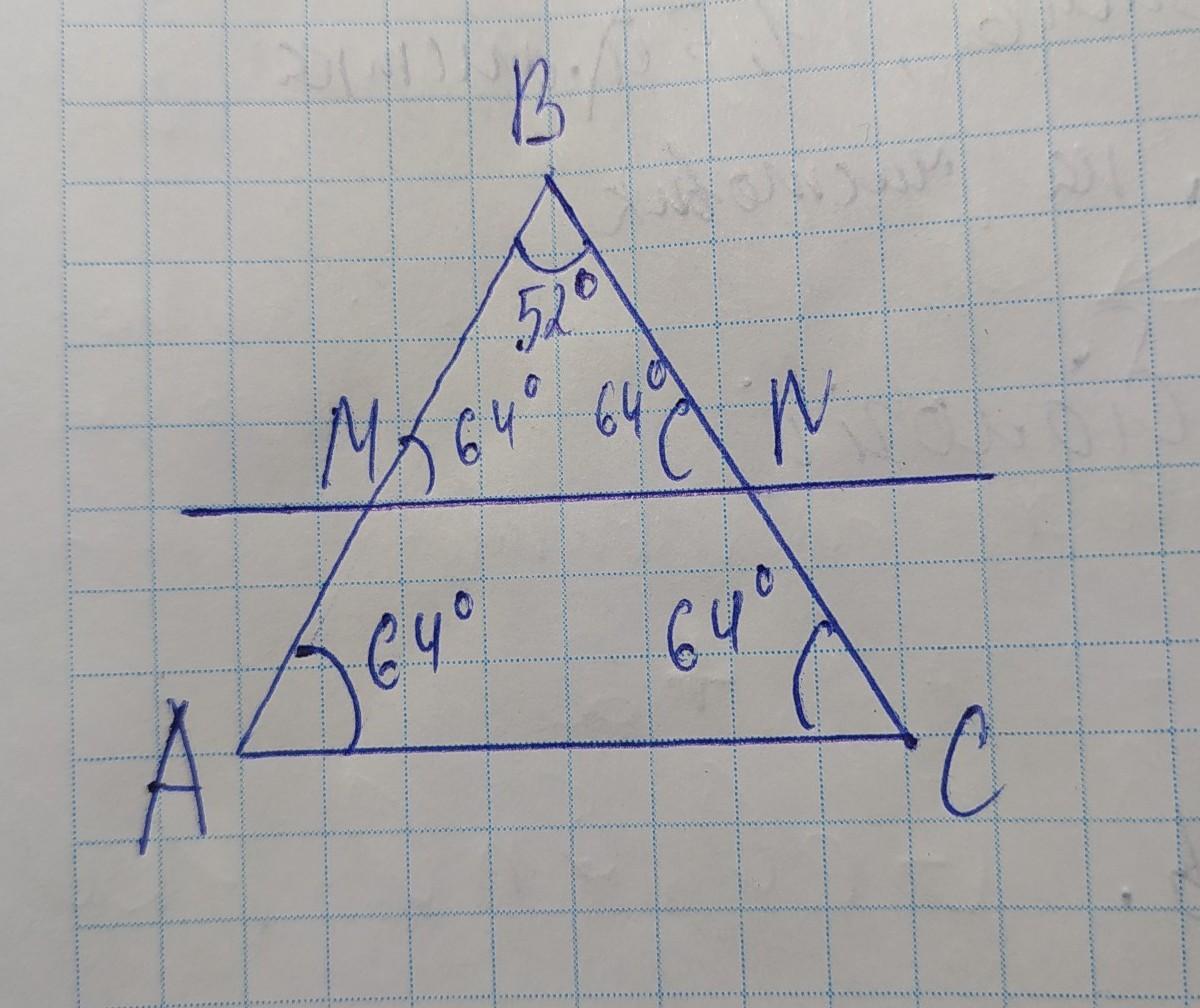 B
52°
M 64° 64° N
64° 64°
A C